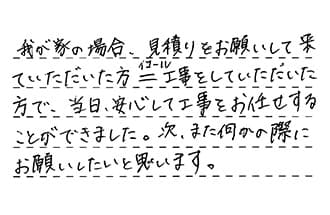 我が家の場合、見積りをお願いして来
ていただいた方＝工事をしていただいた
イコール
方で、当日、安心して工事をお任せする
ことができました。次、また何かの際に
お願いしたいと思います。